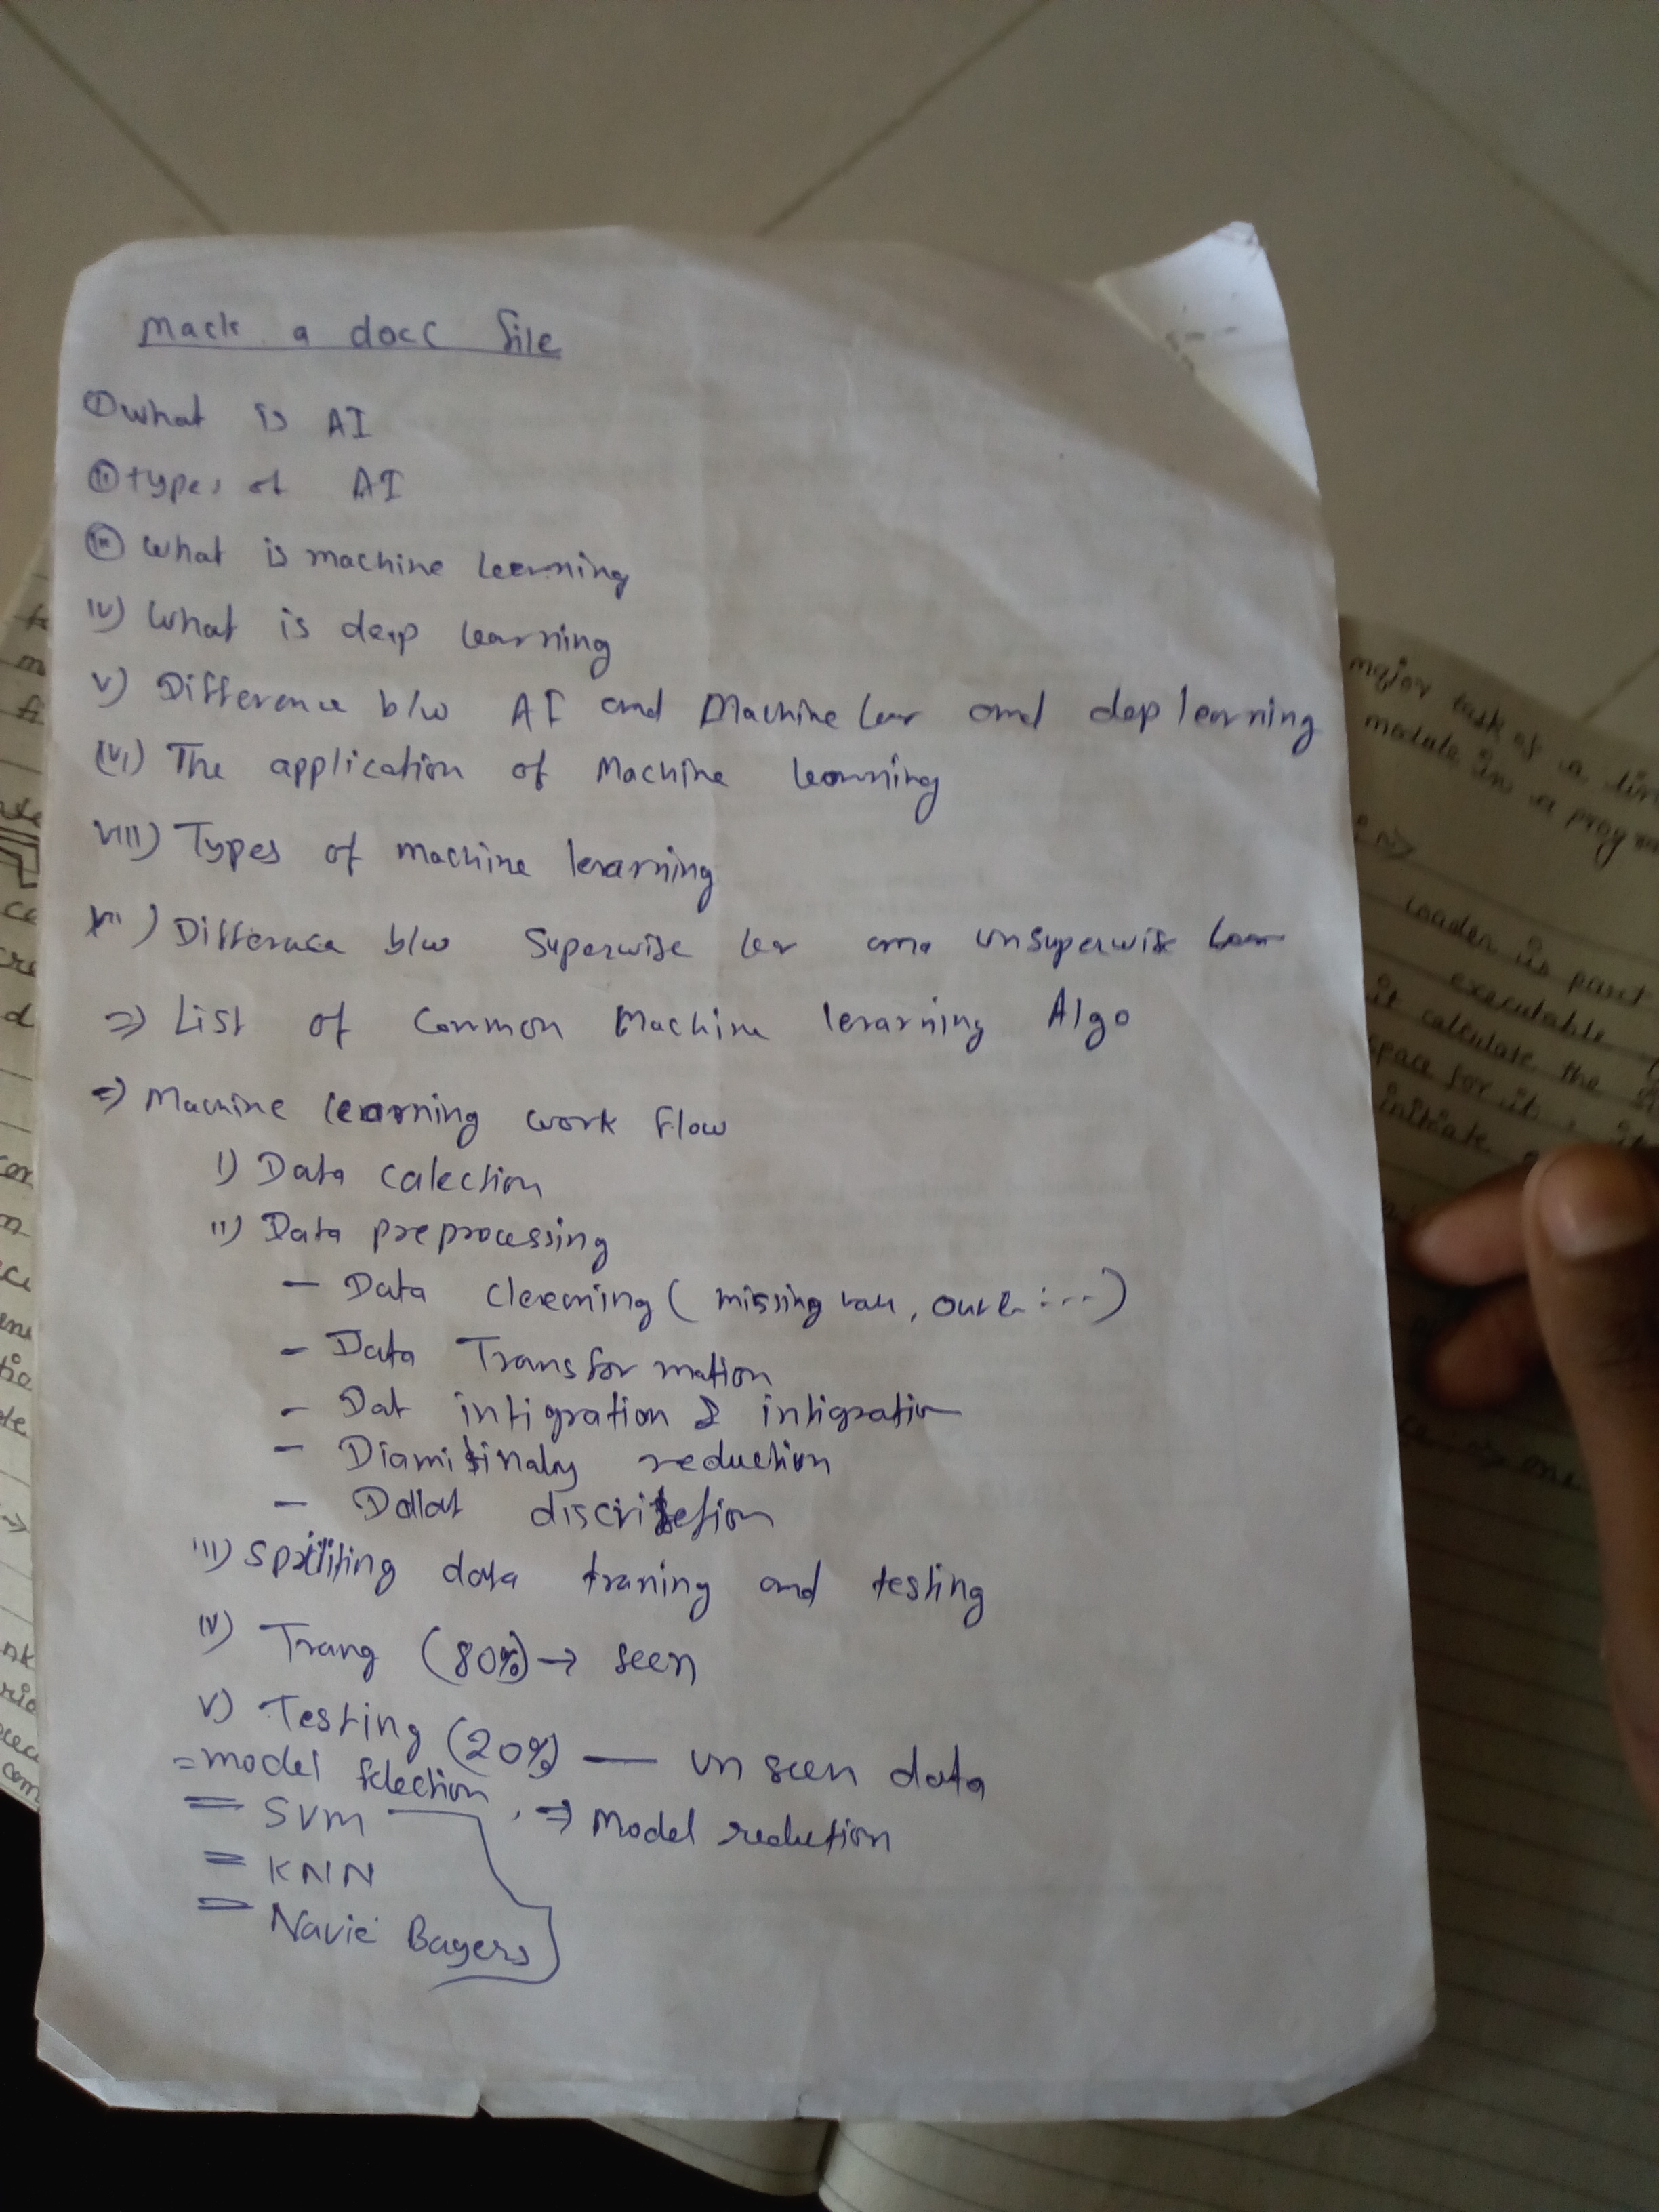 mack a docc file
① what is AI
② types of AI
what is machine learning
iv) what is deep learning
v) Difference b/w AI and Machine lear and deep learning
(vi) The application of Machine learning
VIII) Types of machine learning
) Difference b/w Superwise lear and unsuperwise lear
⇒ List of Common Machine lerarning Algo
⇒ Machine learning work flow
i) Data calection
ii) Data preprocessing
- Data cleaning ( missing
- Data Transformation
- Dat intigration & intigration
- reduction
-
iii) data traning and testing
iv) Trang (80%) → seen
v) Testing (20%) — un seen data
= model selection
= SVM , ⇒ Model reduction
= KNN
= Navie Bayers
major task of a
module in a
Loader is part
executable
it calculate the
space for it,
initiate